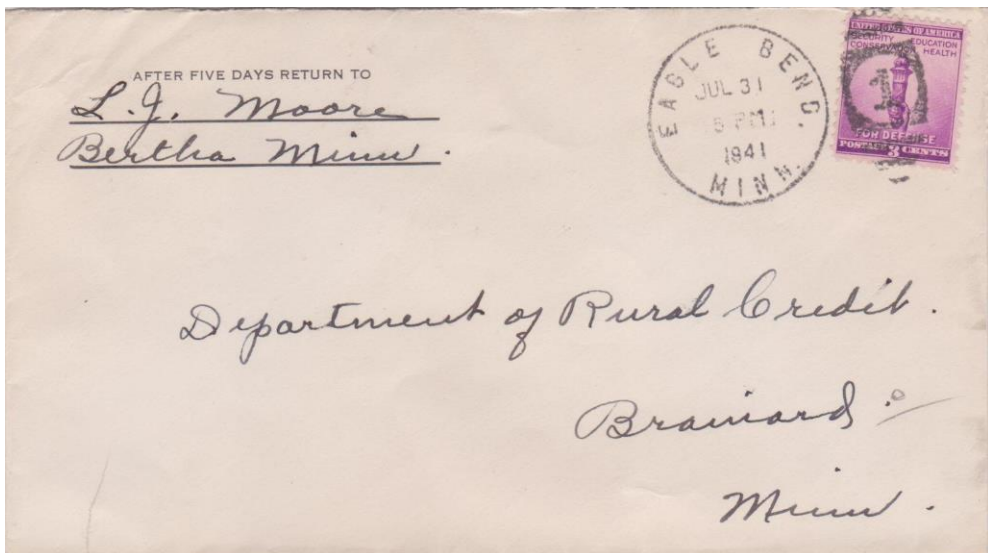 AFTER FIVE DAYS RETURN TO
L. J. Moore
Bertha Minn.
EAGLE BEND.
JUL 31
5 PM
1941
MINN.
UNITED STATES OF AMERICA
SECURITY EDUCATION
CONSERVATION HEALTH
1
FOR DEFENSE
POSTAGE 3 CENTS
Department of Rural Credit.
Brainard
Minn.